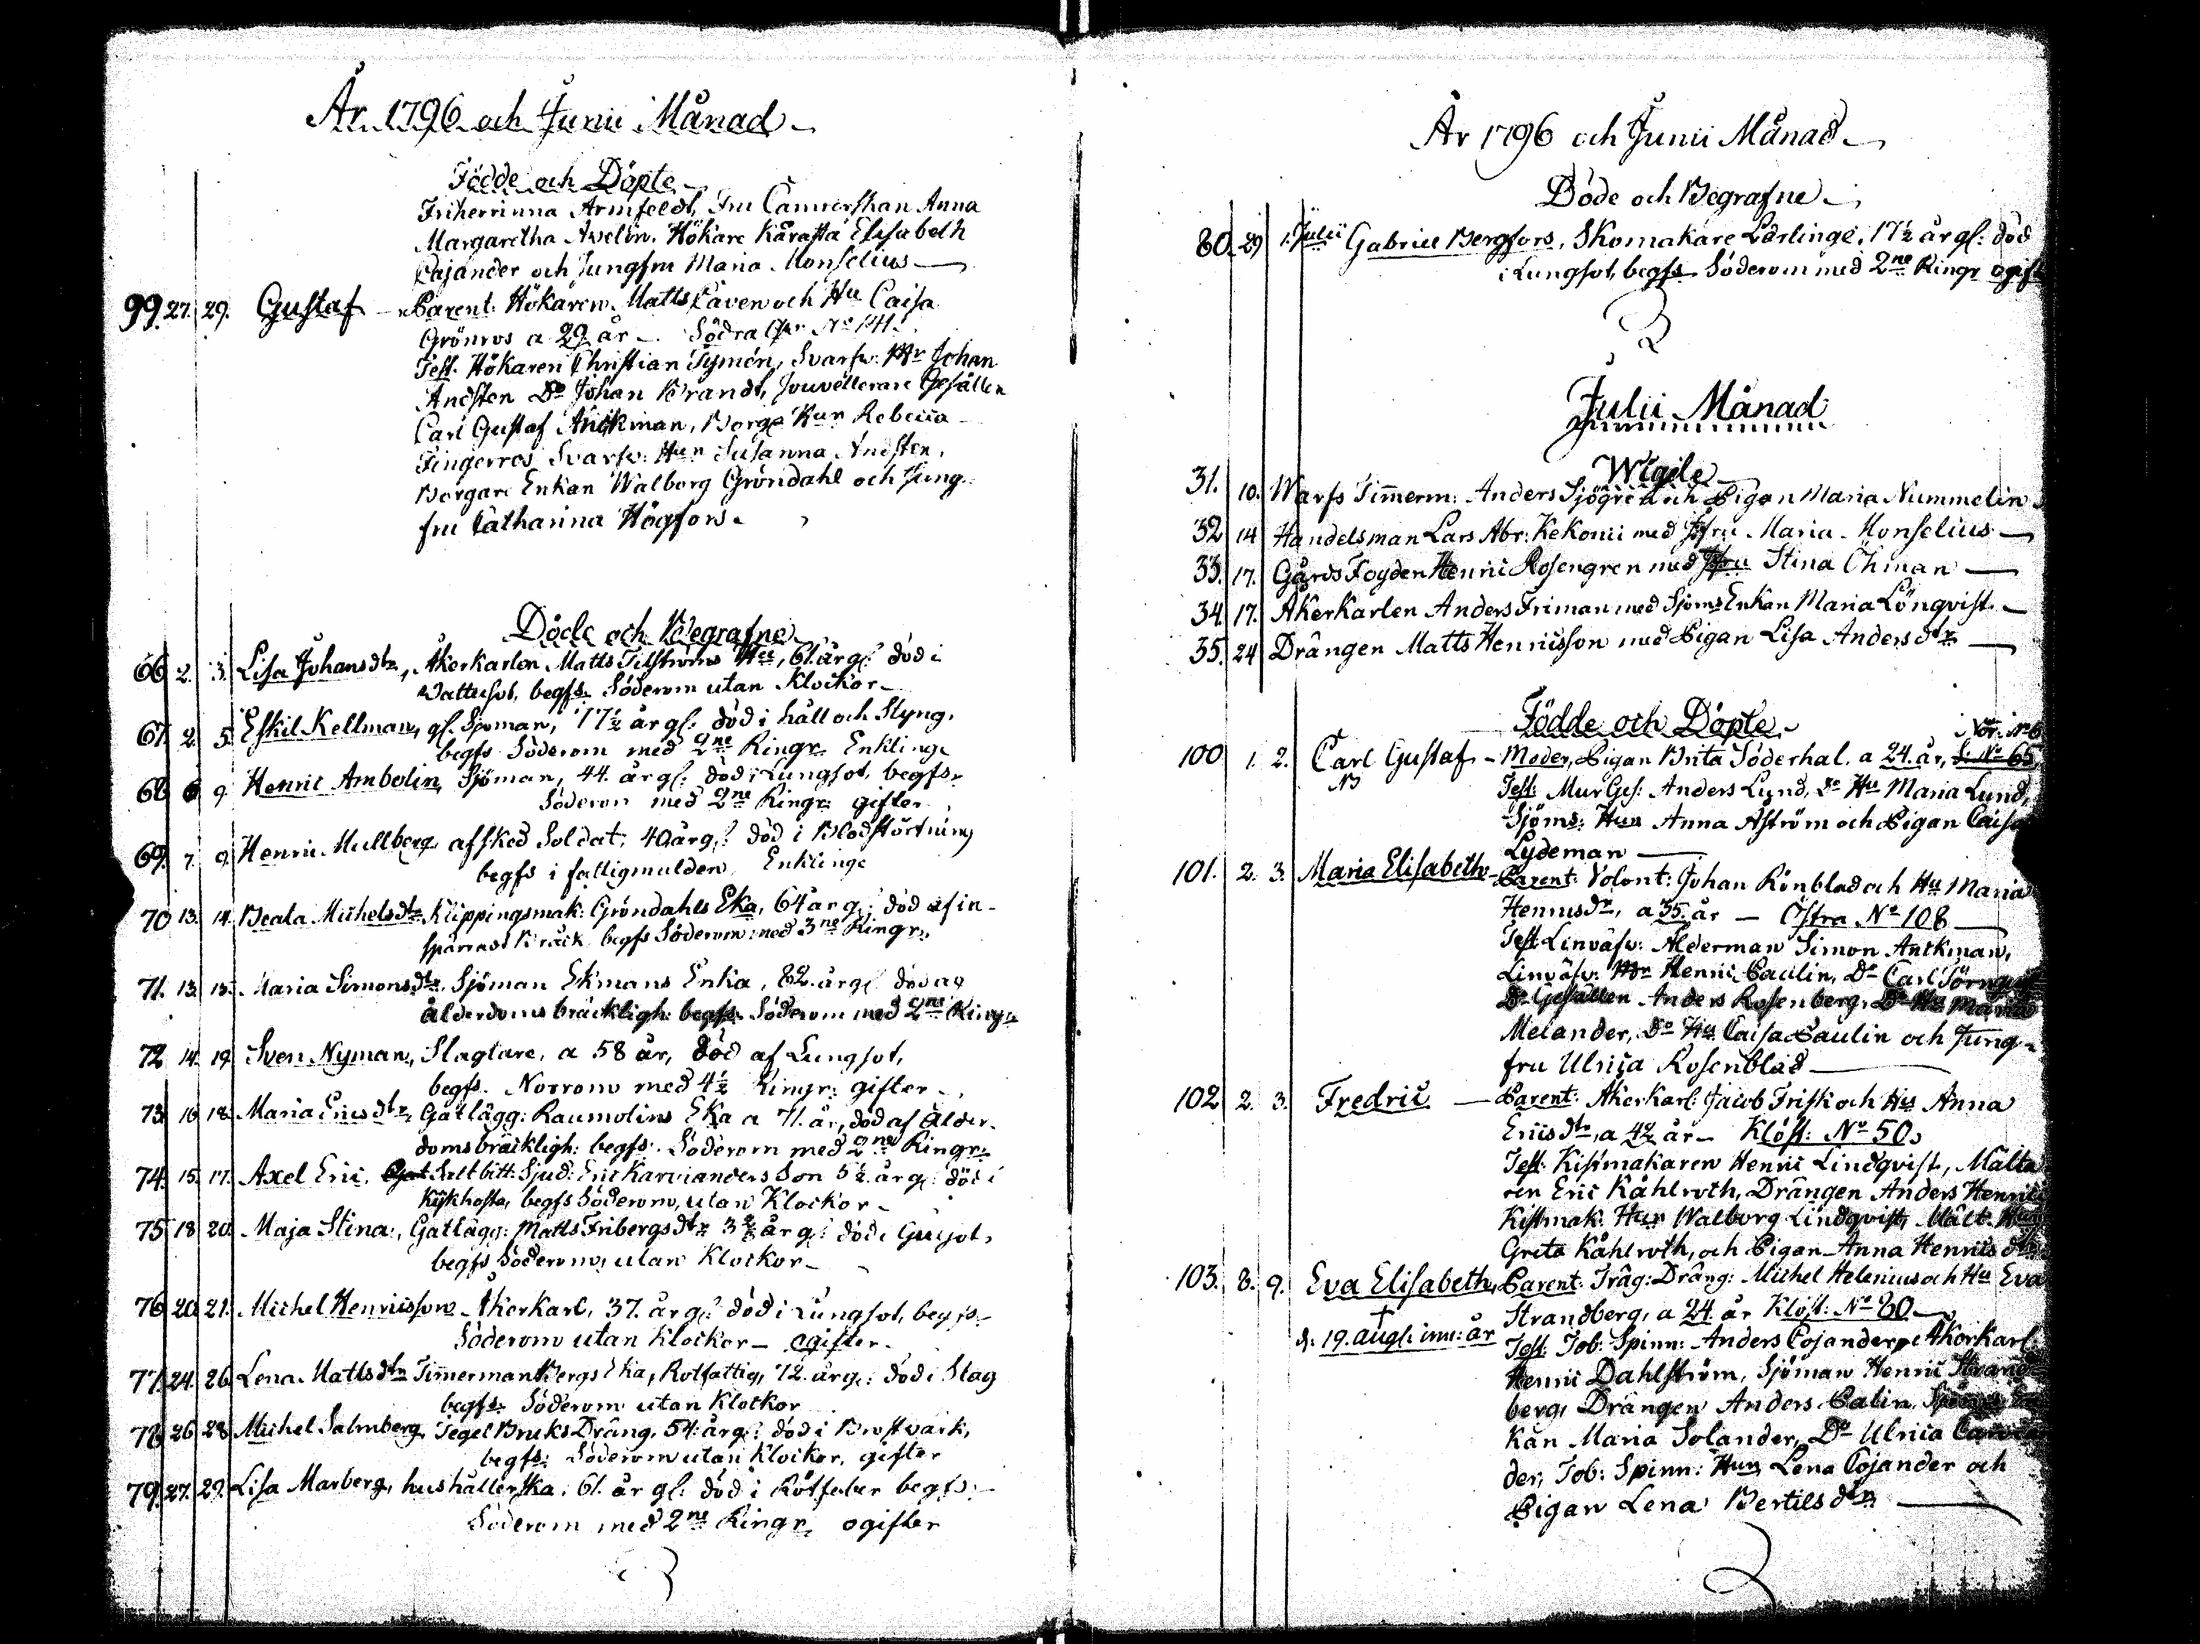 År 1796 och Junii Månad
Födde och Döpte
Friherrinna Armfeldt, Fru Camrerskan Anna
Margaretha Avelin. Hökare Kårasta Elisabeth
Pajander och Jungfru Maria Monselius
99. 27. 29. Gustaf Parent: Hökaren Matts Caven och Hu Caisa
Grönros a 29 år Södra No 141.
Test. Hökaren Christian Tymén, Svarfv: Mr Johan
Andsten Do Johan Brandt, Jouvellerare Gesällen
Carl Gustaf Antkman, Borga Hun Rebecca
Fingerros Svarfv: Hun Susanna Andsten,
Borgare Enkan Walborg Gröndahl och Jung-
fru Catharina Högfors.
Döde och Begrafne
66 2. 3. Lisa Johansdtr, Åkerkarlen Matts Hu, 61 år gl: död i
Wattusot, begfs. Söderom utan Klockor
67. 2. 5. Eskil Kellman, gl. Sjöman, 77½ år gl: död i håll och Styng,
begfs Söderom med 2ne Ringr. Enkling
68 6 9. Henric Ambolin, Sjöman, 44. år gl: död i Lungsot, begfs.
Söderom med 2ne Ringr: gifter
69. 7. 9. Henric Mullberg afsked Soldat, 40 år gl: död i Blodstörtning
begfs i fattigmulden Enklinge
70 13. 14. Beata Michelsdtr Klippingsmak: Gröndahls Eka, 64 år gl: död af in-
spärrad Bråck begfs Söderom med 3ne Ringr.
71. 13. 15. Maria Simonsdtr, Sjöman Ekmans Enka, 82. år gl: död af
ålderdoms bräckligh: begfs. Söderom med 2ne Ringr
72 14. 19. Sven Nyman, Slagtare, a 58 år, död af Lungsot,
begfs. Norrom med 4½ Ringr: gifter
73. 16 18. Maria Ericsdtr, Gatlägg: Raumolins Eka a 71. år, död af Ålder-
domsbräckligh: begfs: Söderom med 2ne Ringr.
74. 15. 17. Axel Eric, Saltbitt: Sjud: Eric Karvianders Son 5½ år gl: död i
Kikhosta, begfs Söderom, utan Klockor
75 18 20. Maja Stina, Gatlägg: Matts Fribergs dtr 3 år gl: död i Gulsot,
begfs Söderom, utan Klockor
76 20. 21. Michel Henricsson Åkerkarl, 37. år gl: död i Lungsot, begfs
Söderom utan Klockor ogifter
77. 24. 26. Lena Mattsdtr Timmerman Bergs Eka, Rotfattig, 72. år gl: död i Slag
begfs. Söderom utan Klockor
78 26 28 Michel Salmberg Tegel Bruks Dräng, 54: år gl: död i Bröstvärk,
begfs: Söderom utan Klockor, gifter
79. 27. 29. Lisa Marberg, hushållerska, 61. år gl: död i Rötfeber begfs:
Söderom med 2ne Ringr. ogifter
År 1796 och Junii Månad
Döde och Begrafne
80. 29 1. Julii Gabriel Bergfors, Skomakare Lärlinge, 17½ år gl: död
i Lungsot, begfs Söderom med 2ne Ringr ogift
Julii Månad
Wigde
31. 10. Warfs Timerm: Anders Sjögren och Pigan Maria Nummelin
32 14 Handelsman Lars Abr: Kekonii med Jfru Maria Monselius
33. 17. Gårds Fogden Henric Rosengren med Jfru Stina Öhman
34 17. Åkerkarlen Anders Friman med Sjöms Enkan Maria Lönqvist
35. 24 Drängen Matts Henricsson med Pigan Lisa Andersdtr
Födde och Döpte
Nor: No 6
100 1. 2. Carl Gustaf Moder, Pigan Brita Söderhal. a 24. år, S. No 65
NB Test: Mur Ges: Anders Lund, Do Hu Maria Lund,
Sjöms: Hun Anna Åström och Pigan Caisa
Lydeman
101. 2. 3. Maria Elisabeth Parent: Volont: Johan Rönblad och Hu Maria
Henricsdr, a 35. år Östra No 108
Test Linväfv: Ålderman Simon Antkman,
Linväfv: Mr Henric Paulin, Do Carl
Do Gesällen Anders Rosenberg, Do Hu Maria
Melander, Do Hu Caisa Paulin och Jung-
fru Ulrica Rosenblad
102 2. 3. Fredric Parent: Åkerkarl: Jacob Frisk och Hu Anna
Ericsdtr, a 42 år Klöst: No 50,
Test: Kistmakaren Henric Lindqvist, Mälta
ren Eric Kåhlroth, Drängen Anders Henrics
Kistmak. Hun Walborg Lindqvist, Mält: Hun
Greta Kåhlroth, och Pigan Anna Henricsdtr
103. 8. 9. Eva Elisabeth, Parent: Träg: Dräng: Michel Helenius och Hu Eva
Strandberg, a 24. år Klöst: No 80
d: 19. Augl: inn: år Test: Tob: Spinn: Anders Pojander, Åkerkarl:
Henric Dahlström, Sjöman Henric Strand-
berg, Drängen Anders Palin,
kan Maria Solander, Do Ulrica
der, Tob: Spinn: Hun Lena Pojander och
Pigan Lena Bertilsdtr